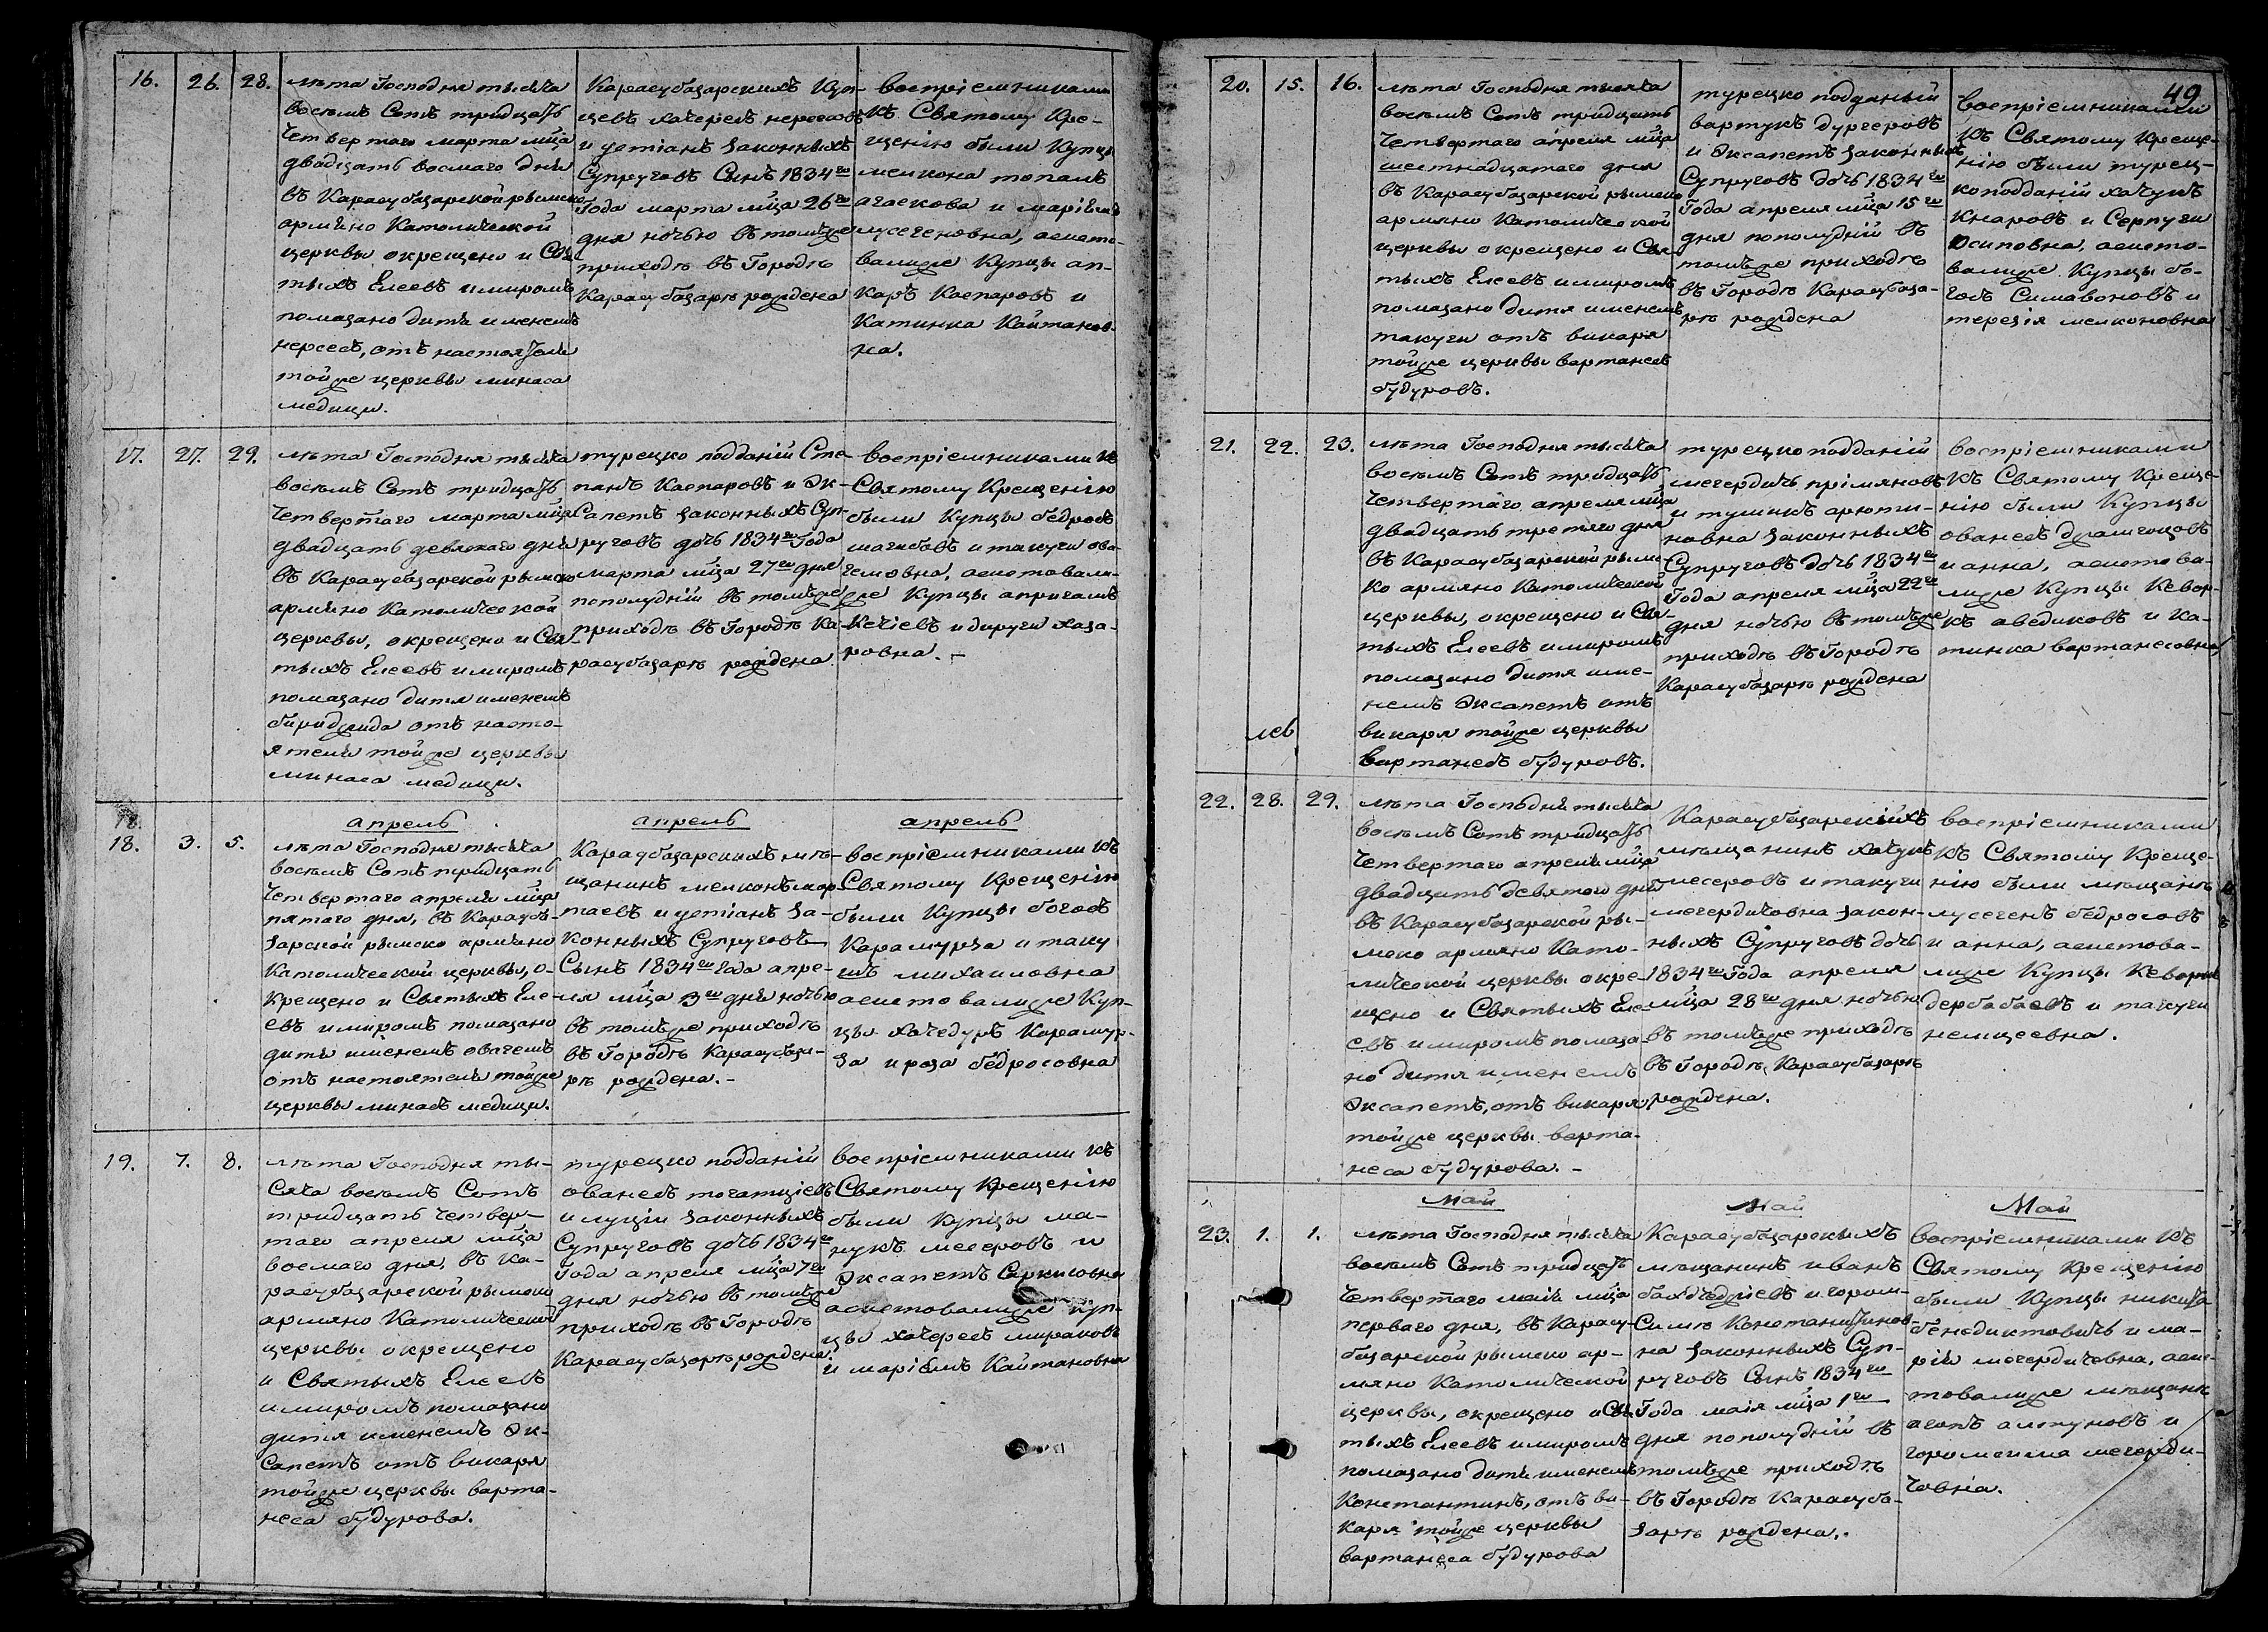 16. 26. 28.
лѣта Господня тысяча
восемъ Сотъ тридцать
Четвертаго марта мѣца
двадцать восмаго дня
въ Карасубазарской рымско
армяно Католической
церквы окрещено и Свя
тыхъ Елеевъ имиромъ
помазано дитя именемъ
нерсесъ, отъ настоятеля
тойже церквы минаса
медици.
Карасубазарскихъ Куп-
цевъ хачересъ нерсесовъ
и устіанъ законныхъ
Супруговъ Сынъ 1834го
Года марта мѣца 26го
дня ночью въ томъже
приходѣ въ Городѣ
Карасубазарѣ рождена
воспріемниками
КЪ Святому Кре-
щенію были Купцы
мелкона топалъ
агаскова и маріамъ
лусегеновна, асисто-
валиже Купцы ап-
каръ Каспаровъ и
Катинка Кайтанов-
на.
17. 27. 29.
лѣта Господня тысяча
восемъ Сотъ тридцать
Четвертаго марта мѣца
двадцать девятаго дня
въ Карасубазарской рымско
армяно Католической
церквы, окрещено и Свя-
тыхъ Елеевъ имиромъ
помазано дитя именемъ
бириджида отъ насто-
ятеля тойже церквы
минаса медици.
турецко подданій Сте-
панъ Каспаровъ и Эк-
Сапетъ законныхъ Суп-
руговъ дочь 1834го Года
марта мѣца 27го дня
пополудній въ томъже
приходѣ въ Городѣ Ка-
расубазарѣ рождена
воспріемниками КЪ
Святому Крещенію
были Купцы бедросъ
и такуги ова-
гемовна, асистовали-
же Купцы апригамъ
Кечіевъ и дируги хаза-
ровна. -
апрель апрель апрель
18. 3. 5.
лѣта Господня тысяча
восемъ Сотъ тридцать
Четвертаго апреля мѣца
пятаго дня, въ Карасуба-
зарской рымско армяно
Католической церквы, о-
крещено и Святыхъ Еле-
евъ имиромъ помазано
дитя именемъ овагемъ
отъ настоятеля тойже
церквы минасъ медици.
Карасубазарскихъ мѣ-
щанинъ мелконъ мар-
таевъ и устіанъ за-
конныхъ Супруговъ
Сынъ 1834го Года апре-
ля мѣца 3го дня ночью
въ томъже приходѣ
въ Городѣ Карасубаза-
рѣ рождена. -
воспріемниками КЪ
Святому Крещенію
были Купцы богосъ
Карамурза и таку
шъ михаиловна
асистовалиже Куп-
цы хачедуръ Карамур-
за и роза бедросовна
19. 7. 8.
лѣта Господня ты-
Сяча восемъ Сотъ
тридцать Четвер-
таго апреля мѣца
восмаго дня, въ Ка-
расубазарской рымско
армяно Католической
церквы окрещено
и Святыхъ Елеевъ
имиромъ помазано
дитя именемъ Эк-
Сапетъ отъ викаря
тойже церквы варта-
неса будурова.
турецко подданій
ованесъ тогатціевъ
и луціи законныхъ
Супруговъ дочь 1834го
Года апреля мѣца 7го
дня ночью въ томъже
приходѣ въ Городѣ
Карасубазарѣ рождена.
воспріемниками КЪ
Святому Крещенію
были Купцы ма-
нукъ месеровъ и
Эксапетъ Саркисовна
асистовалиже Куп-
цы хачересъ мираковъ
и маріямъ Кайтановна
49
20. 15. 16.
лѣта Господня тысяча
восемъ Сотъ тридцать
Четвертаго апреля мѣца
шестнадцатаго дня
въ Карасубазарской рымско
армяно Католической
церквы окрещено и Свя
тыхъ Елеевъ имиромъ
помазано дитя именемъ
такуги отъ викаря
тойже церквы вартанесъ
будуровъ.
турецко подданый
вартукъ дургеровъ
и Эксапетъ законныхъ
Супруговъ дочь 1834го
Года апреля мѣца 15го
дня пополудній въ
томъже приходѣ
въ Городѣ Карасубаза-
рѣ рождена
воспріемниками
КЪ Святому Креще-
нію были турец-
ко подданій хачукъ
Кнаровъ и Серпуги
Осиповна, асисто-
валиже Купцы бо-
госъ Симавоновъ и
терезія мелконовна
21. 22. 23.
лѣта Господня тысяча
восемъ Сотъ тридцать
Четвертаго апреля мѣца
двадцать третяго дня
въ Карасубазарской рымс-
ко армяно Католической
церквы, окрещено и Свя-
тыхъ Елеевъ имиромъ
помазано дитя име-
немъ Эксапетъ отъ
викаря тойже церквы
Вартанесъ будуровъ.
турецко подданій
мегердичь прімяновъ
и тушикъ арюти-
новна законныхъ
Супруговъ дочь 1834го
Года апреля мѣца 22го
дня ночью въ томъже
приходѣ въ Городѣ
Карасубазарѣ рождена
воспріемниками
КЪ Святому Креще-
нію были Купцы
ованесъ драмгоцовъ
и анна, асистова-
лиже Купцы Кевор-
къ аведиковъ и Ка-
тинка вартанесовна
22. 28. 29.
лѣта Господня тысяча
восемъ Сотъ тридцать
Четвертаго апреля мѣца
двадцать девятого дня
въ Карасубазарской ры-
мско армяно Като-
лической церквы окре-
щено и Святыхъ Еле-
евъ имиромъ помаза-
но дитя именемъ
Эксапетъ, отъ викаря
тойже церквы варта-
неса будурова. -
Карасубазарскійхъ
мѣщанинъ хачукъ
месеровъ и такуги
мегердичовна закон-
ныхъ Супруговъ дочь
1834го Года апреля
мѣца 28го дня ночью
въ томъже приходѣ
въ Городѣ Карасубазарѣ
рождена.
воспріемниками
КЪ Святому Креще-
нію были мѣщанъ
лусегенъ бедросовъ
и анна, асистова-
лиже Купцы Кеворкъ
дербабаевъ и такуги
немцеевна.
май май Май
23. 1. 1.
лѣта Господня тысяча
восемъ Сотъ тридцать
Четвертаго маія мѣца
перваго дня, въ Карасу-
базарской рымско ар-
мяно Католической
церквы, окрещено и Свя
тыхъ Елеевъ имиромъ
помазано дитя именемъ
Константинъ, отъ ви-
каря тойже церквы
вартанеса будурова
Карасубазарскыхъ
мѣщанинъ иванъ
и гором-
Симъ Константинов-
на законныхъ Суп-
руговъ Сынъ 1834го
Года маія мѣца 1го
дня пополудній въ
томъже приходѣ
въ Городѣ Карасуба-
зарѣ рождена.
воспріемниками КЪ
Святому Крещенію
были Купцы никита
бенедиктовичь и ма-
рія мегердичовна, асис-
товалиже мѣщанъ
агопъ алтуновъ и
горомсима мегерди-
човна.